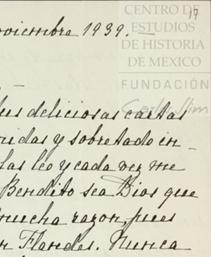 CENTRO DE
ESTUDIOS
DE HISTORIA
DE MEXICO
FUNDACIÓN
17
oviembre 1939.
us deliciosas cartas
ridas y sobretodo en
las leo y cada vez me
Bendito sea Dios que
mucha razon, pues
n Flandes. Nunca